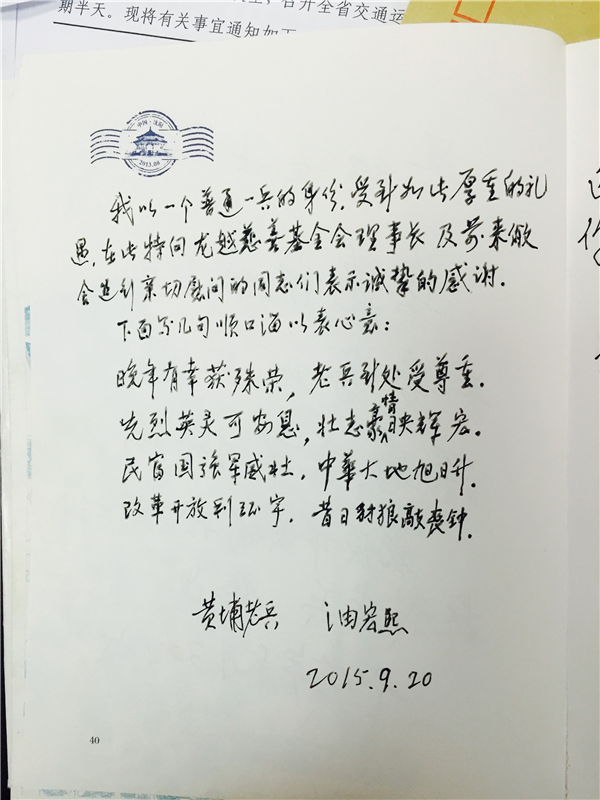 召开全省交通运
期半天。现将有关事宜通知如下
中国·沈阳
2015.09
我以一个普通一兵的身份,受到如此厚重的礼
遇,在此特向龙越慈善基金会理事长及前来做
会进行亲切慰问的同志们表示诚挚的感谢.
下面写几句顺口溜以表心意:
晚年有幸获殊荣,老兵到处受尊重.
先烈英灵可安息,壮志豪情日映辉宏.
民富国强军威壮,中華大地旭日升.
改革开放利环宇,昔日豺狼敲丧钟.
黄埔老兵 油宏熙
2015.9.20
40